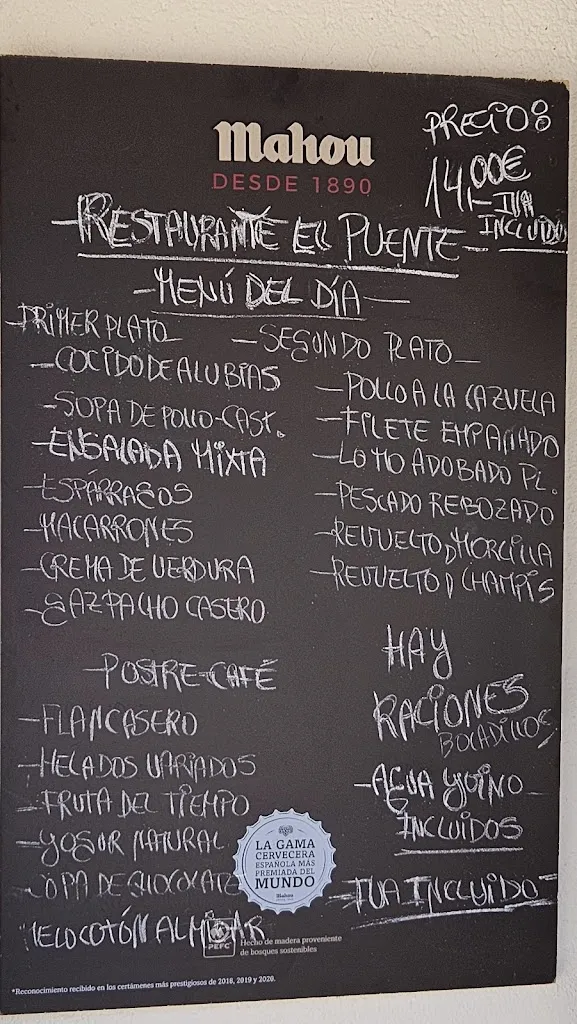 Mahou
DESDE 1890
PRECIO:
14,00€
IVA
INCLUIDO
-RESTAURANTE EL PUENTE-
-MENÚ DEL DÍA-
-PRIMER PLATO
-COCIDO DE ALUBIAS
-SOPA DE POLLO-CAST.
-ENSALADA MIXTA
-ESPÁRRAGOS
-MACARRONES
-CREMA DE VERDURA
-GAZPACHO CASERO
-SEGUNDO PLATO-
-POLLO A LA CAZUELA
-FILETE EMPANADO
-LOMO ADOBADO PL.
-PESCADO REBOZADO
-REVUELTO D MORCILLA
-REVUELTO D CHAMPIS
-POSTRE-CAFÉ
-FLAN CASERO
-HELADOS VARIADOS
-FRUTA DEL TIEMPO
-YOGUR NATURAL
-COPA DE CHOCOLATE
MELOCOTÓN ALMIBAR
HAY
RACIONES
BOCADILLOS
-AGUA Y VINO-
INCLUIDOS
-IVA INCLUIDO-
LA GAMA
CERVECERA
ESPAÑOLA MÁS
PREMIADA DEL
MUNDO
Mahou
PEFC
Hecho de madera proveniente
de bosques sostenibles
*Reconocimiento recibido en los certámenes más prestigiosos de 2018, 2019 y 2020.